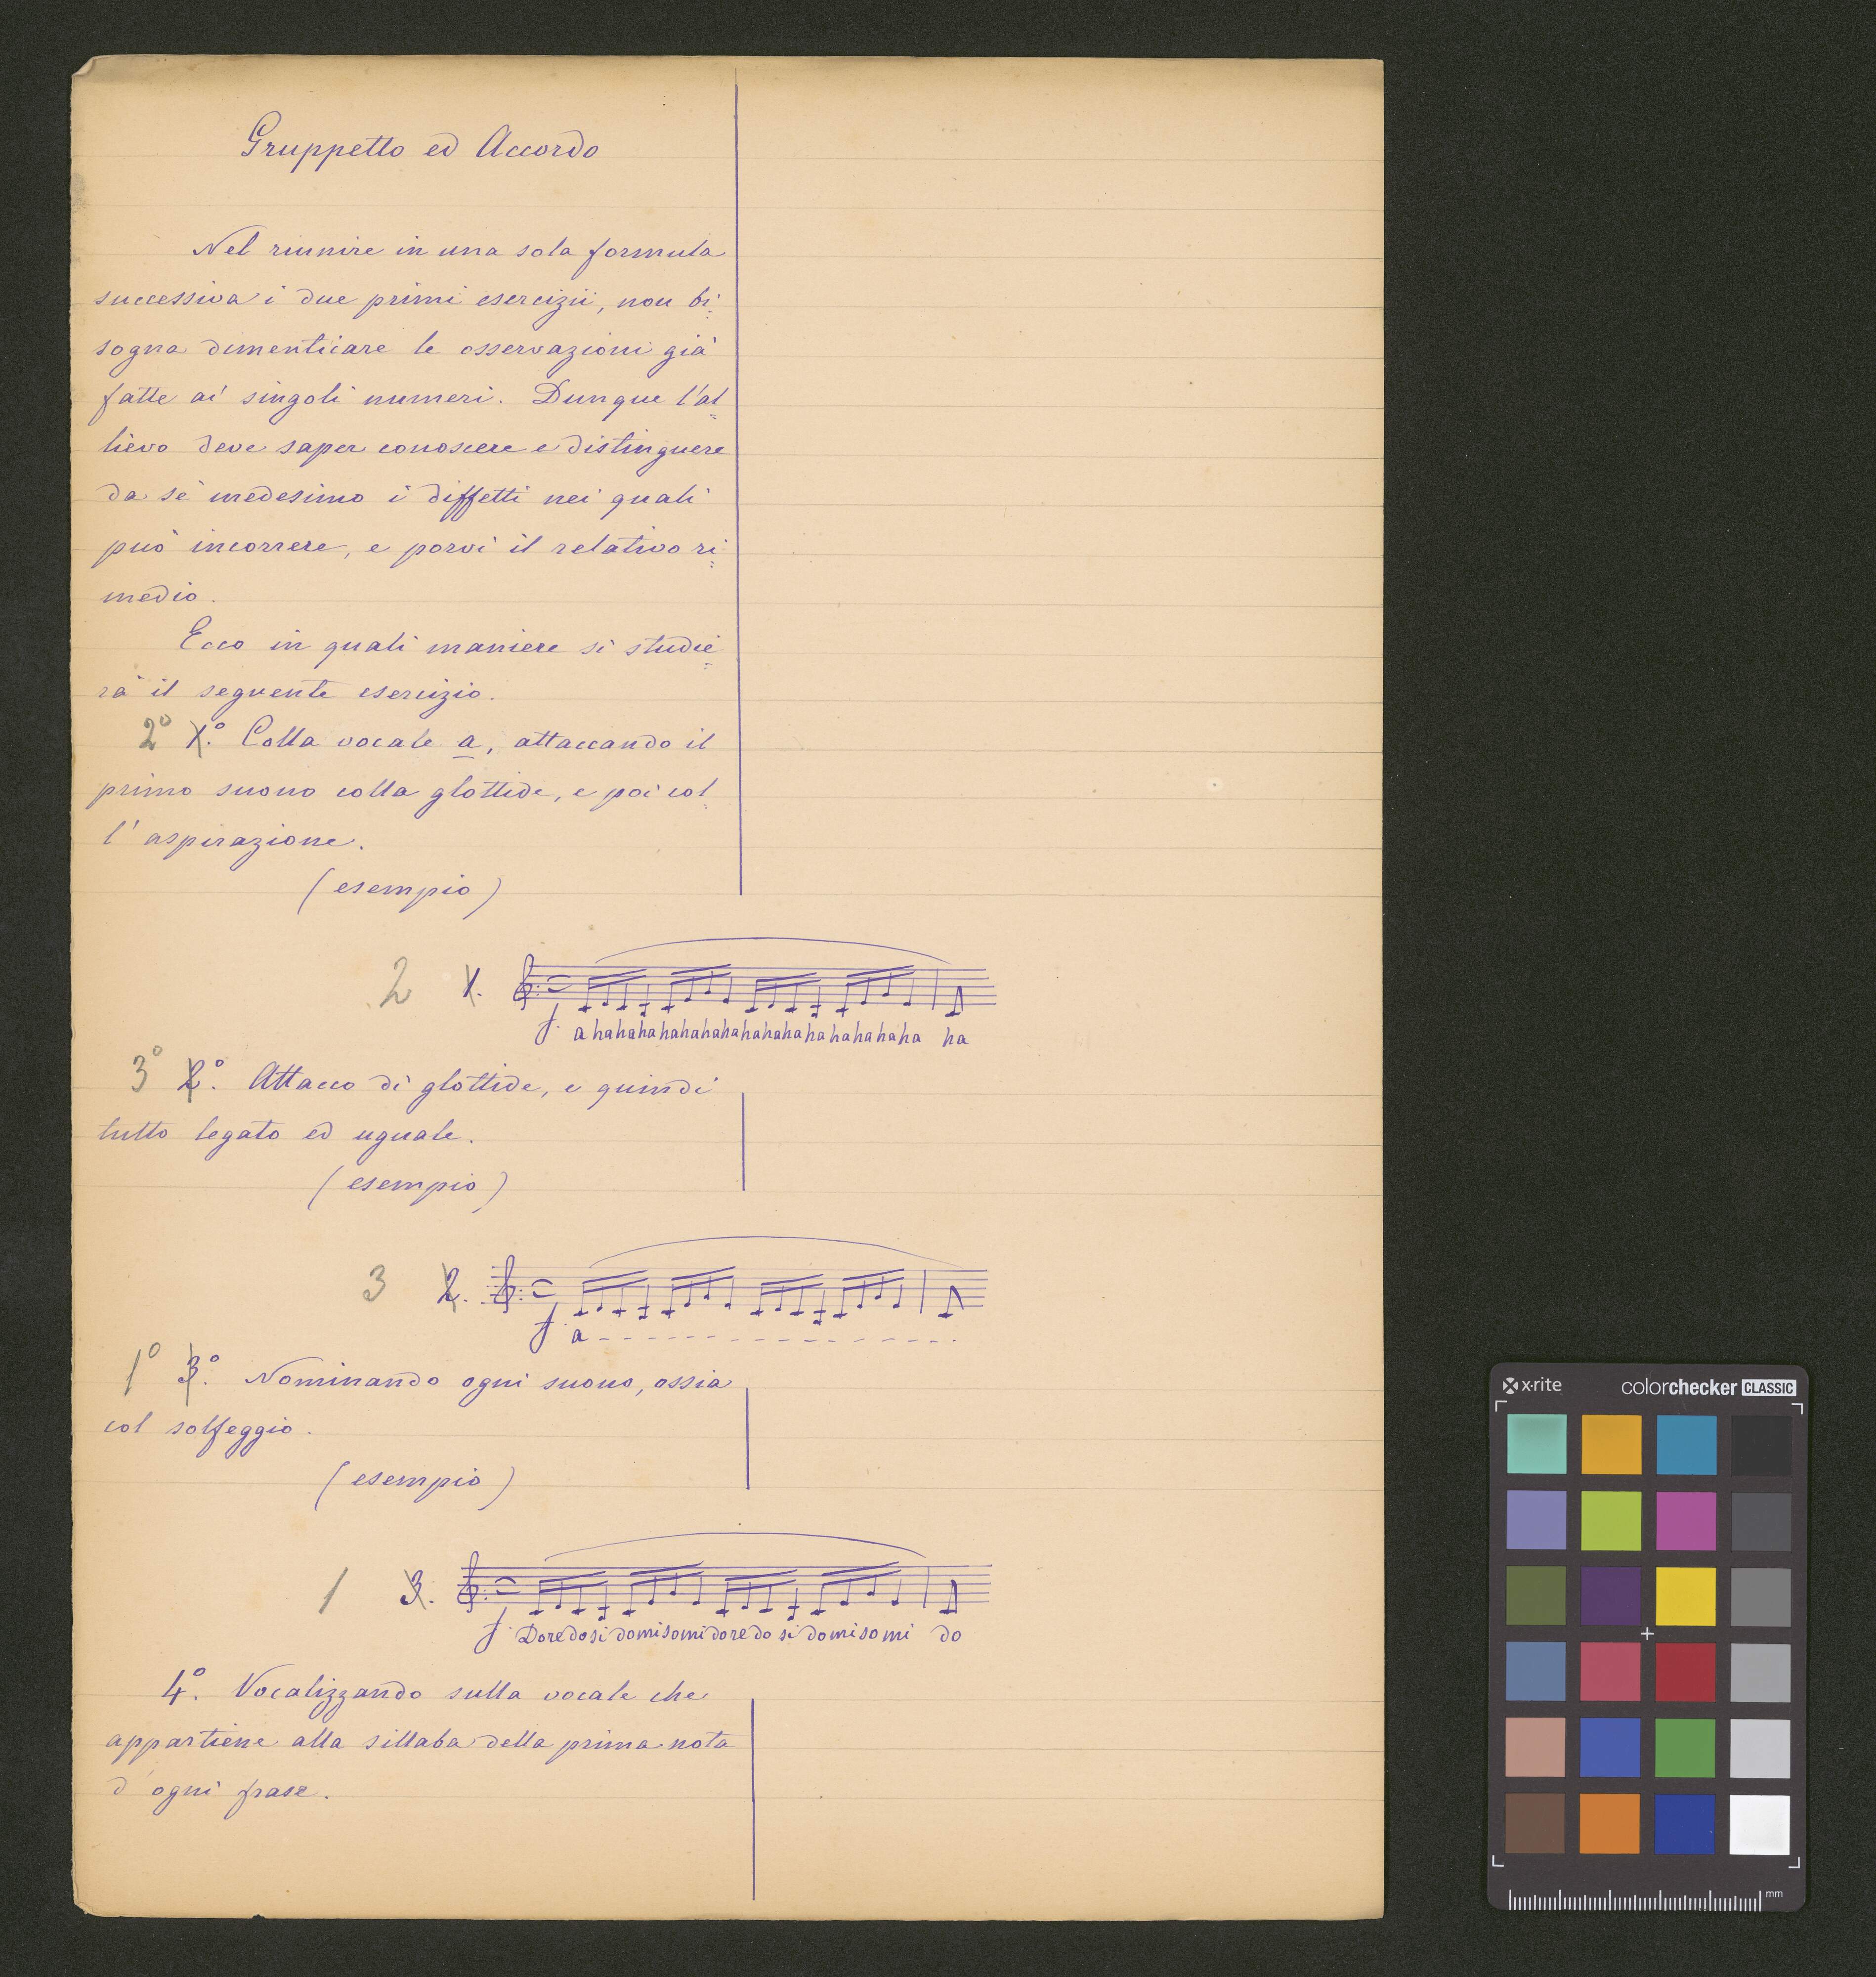 Gruppetto ed Accordo
Nel riunire in una sola formula
successiva i due primi esercizii, non bi=
sogna dimenticare le osservazioni già
fatte ai singoli numeri. Dunque l'al=
lievo deve saper conoscere e distinguere
da sè medesimo i diffetti nei quali
può incorrere, e porvi il relativo ri=
medio.
Ecco in quali maniere si studie=
rà il seguente esercizio.
2º 1.º Colla vocale a, attaccando il
primo suono colla glottide, e poi col=
l'aspirazione.
(esempio)
2 1.
f. a hahahahahahahahahahahahahahaha ha
3º 2º. Attacco di glottide, e quindi
tutto legato ed uguale.
(esempio)
3 2.
f. a - - - - - - - - - - - - - - - -
1º 3º. Nominando ogni suono, ossia
col solfeggio.
(esempio)
1 3.
f. Doredosi domisomidoredo si domisomi do
4º. Vocalizzando sulla vocale che
appartiene alla sillaba della prima nota
d'ogni frase.
x-rite colorchecker CLASSIC
mm